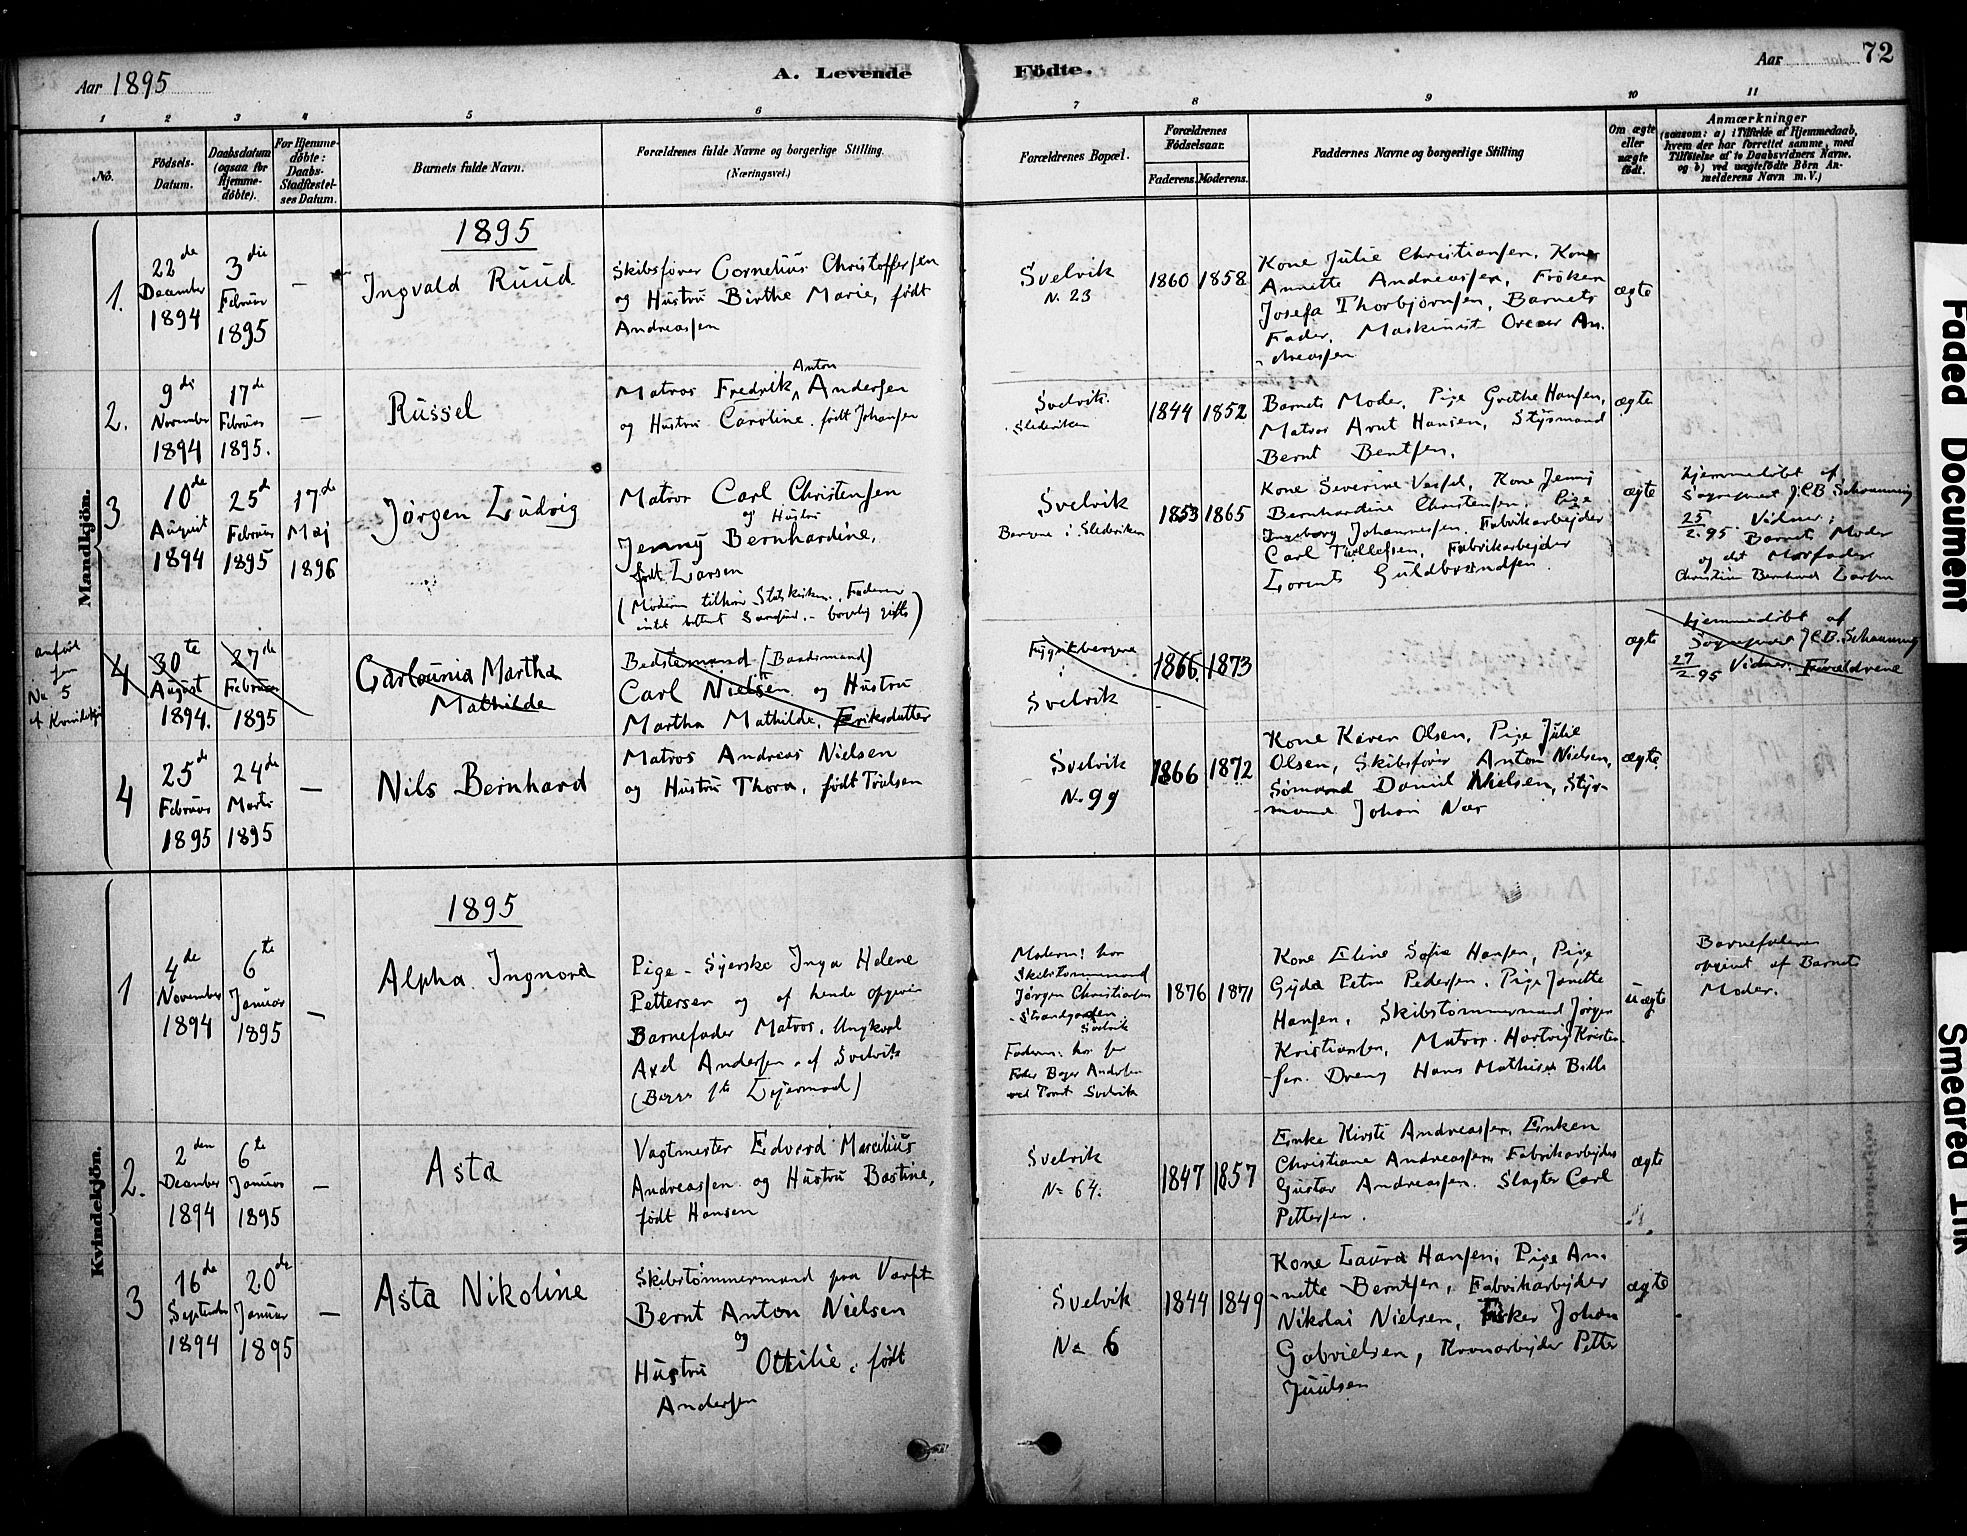 Aar 1895
A. Levende
Födte.
Aar
72
1
2
3
4
5
6
7
8
9
10
11
No.
Födsels-
Datum.
Daabsdatum
(ogsaa for
Hjemme-
döbte).
For Hjemme-
döbte:
Daabs-
Stadfæstel-
ses Datum.
Barnets fulde Navn.
Forældrenes fulde Navne og borgerlige Stilling.
(Næringsvei.)
Forældrenes Bopæl.
Forældrenes
Födselsaar.
Faderens.
Moderens.
Faddernes Navne og borgerlige Stilling
Om ægte
eller
uægte
födt.
Anmærkninger
(saasom: a) i Tilfælde af Hjemmedaab,
hvem der har forrettet samme, med
Tilföielse af to Daabsvidners Navne,
og b) ved uægtefödte Börn An-
melderens Navn m. V.)
Mandkjön.
1895
1.
22de
December
1894
3die
Februar
1895
—
Ingvald Ruud
Skibsfører Cornelius Christoffersen
og Hustru Birthe Marie, født
Andreassen
Svelvik
N. 23
1860
1858
Kone Julie Christiansen, Kone
Annette Andreassen, Frøken
Josefa Thorbjørnsen, Barnets
Fader, Maskinist Oscar An-
dreassen
ægte
2.
9de
November
1894
17de
Februar
1895.
—
Russel
Matros Fredrik Anton Andersen
og Hustru Caroline født Johansen
Svelvik
1844
1852
Barnets Moder, Pige Grethe Hansen,
Matros Arnt Hansen, Styrmand
Bernt Bentsen.
ægte
3
10de
August
1894
25de
Februar
1895
17de
Maj
1896
Jørgen Ludvig
Matros Carl Christensen
og Hustru
Jenny Bernhardine,
født Larsen
(Moderen tilhør Statskirken, Faderen
intet bestemt Samfund. – borgerlig gifte)
Svelvik
1853
1865
Kone Severine Vessel, Kone Jenny
Bernhardine Christensen, Pige
Ingeborg Johannesen, Fabrikarbejder
Carl Tollefsen, Fabrikarbejder
Lorents Guldbrandsen
ægte
Hjemmedøbt af
Sogneprest J.C.B. Schanning
25/2 95 Vidner:
Barnets Moder
og det Morfader
Christian Bernhard Larsen
anført
som
No 5
af Kvindekjøn
4
30te
August
1894.
27de
Februar
1895
Martha
Mathilde
Bedstemand (Baadsmand)
Carl Nielsen og Hustru
Martha Mathilde, Eriksdatter
Svelvik
1866
1873
ægte
Hjemmedøbt af
Sogneprest J.C.B. Schanning
27/2 95 Vidner: Forældrene
4
25de
Februar
1895
24de
Marts
1895
—
Nils Bernhard
Matros Andreas Nielsen
og Hustru Thora, født Troelsen
Svelvik
No 99
1866
1872
Kone Karen Olsen, Pige Julie
Olsen, Skibsfører Anton Nielsen,
Sømand Daniel Nielsen, Styr-
mand Johan Næs
ægte
Kvindekjön.
1895
1
4de
November
1894
6te
Januar
1895
—
Alpha Ingnora
Pige – Syerske Inga Helene
Pettersen og af hende opgivne
Barnefader Matros, Ungkarl
Axel Andersen af Svelvik
(Begges 1ste Lejermaal)
Moderen: hos
Skibstømmermand
Jørgen Christiansen
Strandgaden
Svelvik
Faderen: hos sin
Fader Andersen
Svelvik
1876
1871
Kone Eline Sofie Hansen, Pige
Gyda Petra Pedersen, Pige Janette
Hansen, Skibstømmermand Jørgen
Kristiansen, Matros Hartvig Kristen-
sen. Dreng Hans Mathias
uægte
Barnefaderen
opgivet af Barnets
Moder.
2.
2den
December
1894
6te
Januar
1895
—
Asta
Vagtmester Edvard Marcilius
Andreassen og Hustru Bastine,
født Hansen
Svelvik
No 64.
1847
1857
Enke Kirsti Andreassen, Enken
Christiane Andreassen, Fabrikarbejder
Gustav Andreassen. Slagter Carl
Pettersen.
ægte
3
16de
September
1894
20de
Januar
1895
—
Asta Nikoline
Skibstømmermand paa Værft
Bernt Anton Nielsen
og
Hustru Ottilie, født
Andersen
Svelvik
No 6
1844
1849
Kone Laura Hansen, Pige An-
nette Berntsen, Fabrikarbejder
Nikolai Nielsen, Fisker Johan
Gabrielsen, Kranarbejder Petter
Juulsen
ægte
Faded Document
Smeared Ink